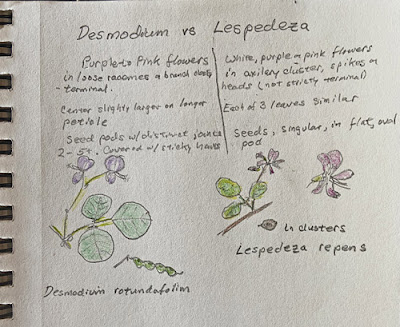 Desmodium vs Lespedeza
Purple to Pink flowers
in loose racemes & branch
- terminal.
Center slightly larger on longer
petiole
Seed pods w/ distinct joints
2-5+. Covered w/ sticky hairs
White, purple or pink flowers
in axilery cluster, spikes or
heads (not strictly terminal)
Each of 3 leaves similar
Seeds, singular, in flat, oval
pod
In clusters
Lespedeza repens
Desmodium rotundafolim